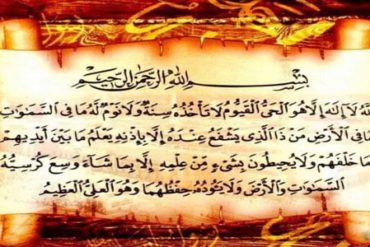 بِسْمِ اللهِ الرَّحْمَنِ الرَّحِيمِ
اللَّهُ لَا إِلَهَ إِلَّا هُوَ الْحَيُّ الْقَيُّومُ لَا تَأْخُذُهُ سِنَةٌ وَلَا نَوْمٌ لَهُ مَا فِي السَّمَوَاتِ
وَمَا فِي الْأَرْضِ مَنْ ذَا الَّذِي يَشْفَعُ عِنْدَهُ إِلَّا بِإِذْنِهِ يَعْلَمُ مَا بَيْنَ أَيْدِيهِمْ
وَمَا خَلْفَهُمْ وَلَا يُحِيطُونَ بِشَيْءٍ مِنْ عِلْمِهِ إِلَّا بِمَا شَاءَ وَسِعَ كُرْسِيُّهُ
السَّمَوَاتِ وَالْأَرْضَ وَلَا يَئُودُهُ حِفْظُهُمَا وَهُوَ الْعَلِيُّ الْعَظِيمُ